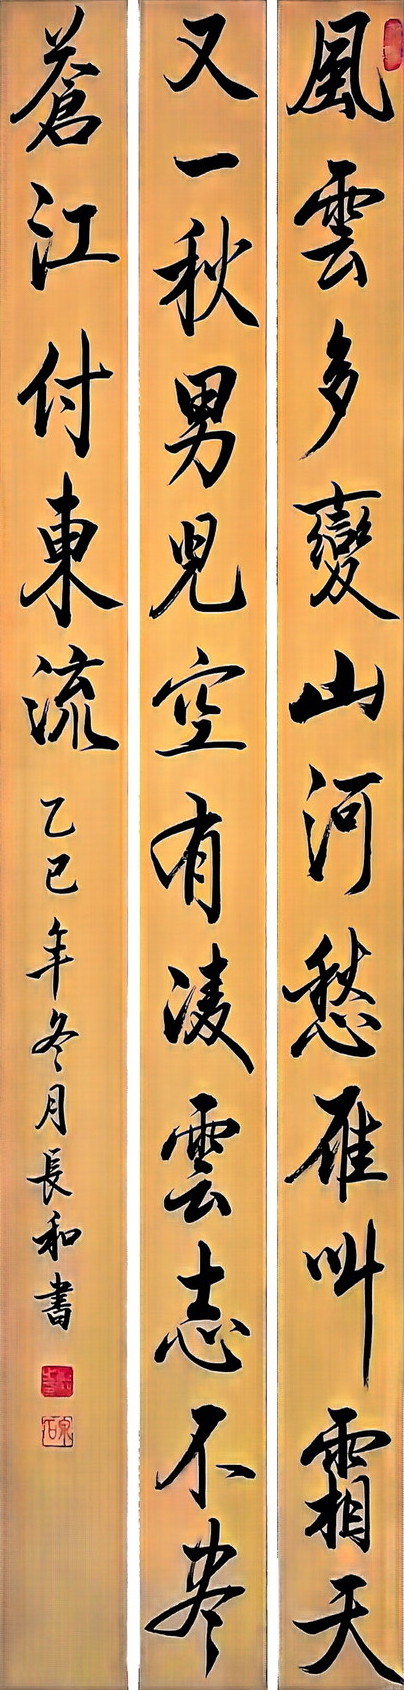 風雲多變山河愁雁叫霜天
又一秋男兒空有凌雲志不盡
蒼江付東流
乙巳年冬月長和書